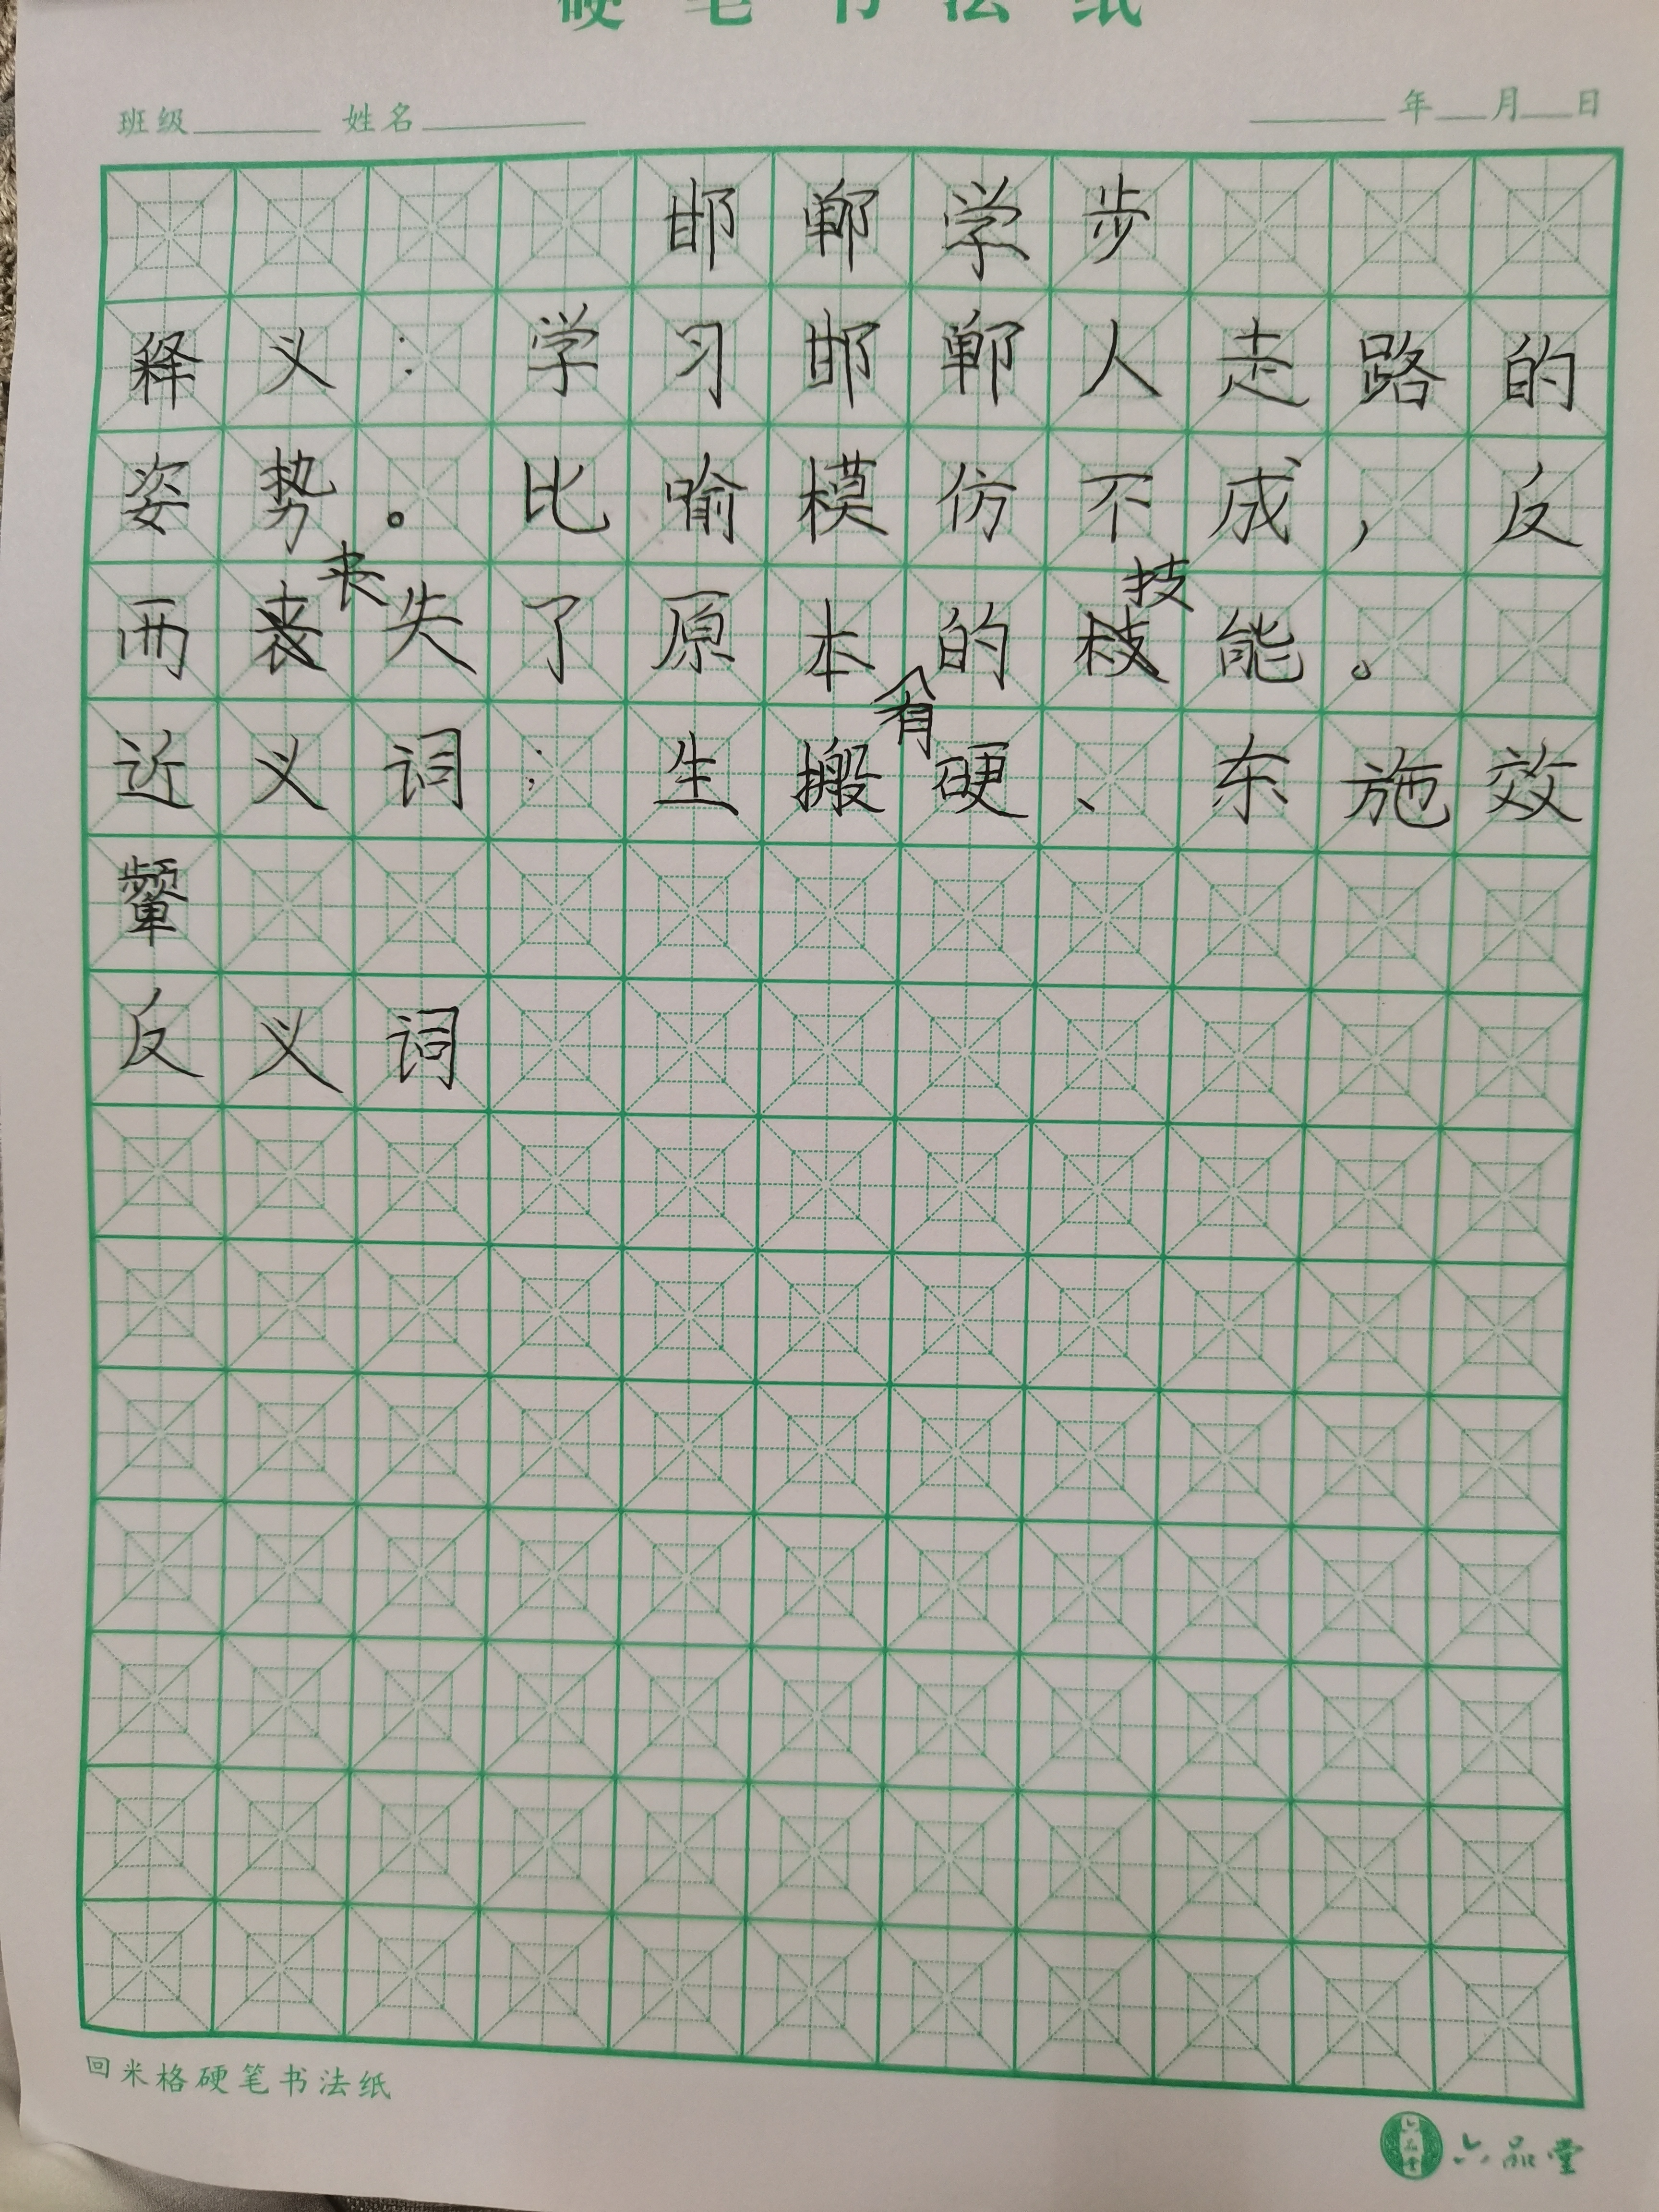 硬笔书法纸
班级 姓名 年 月 日
邯郸学步
释义：学习邯郸人走路的
姿势。比喻模仿不成，反
而丧失了原本的技能。
近义词：生搬有硬、东施效
颦
反义词
回米格硬笔书法纸
六品堂